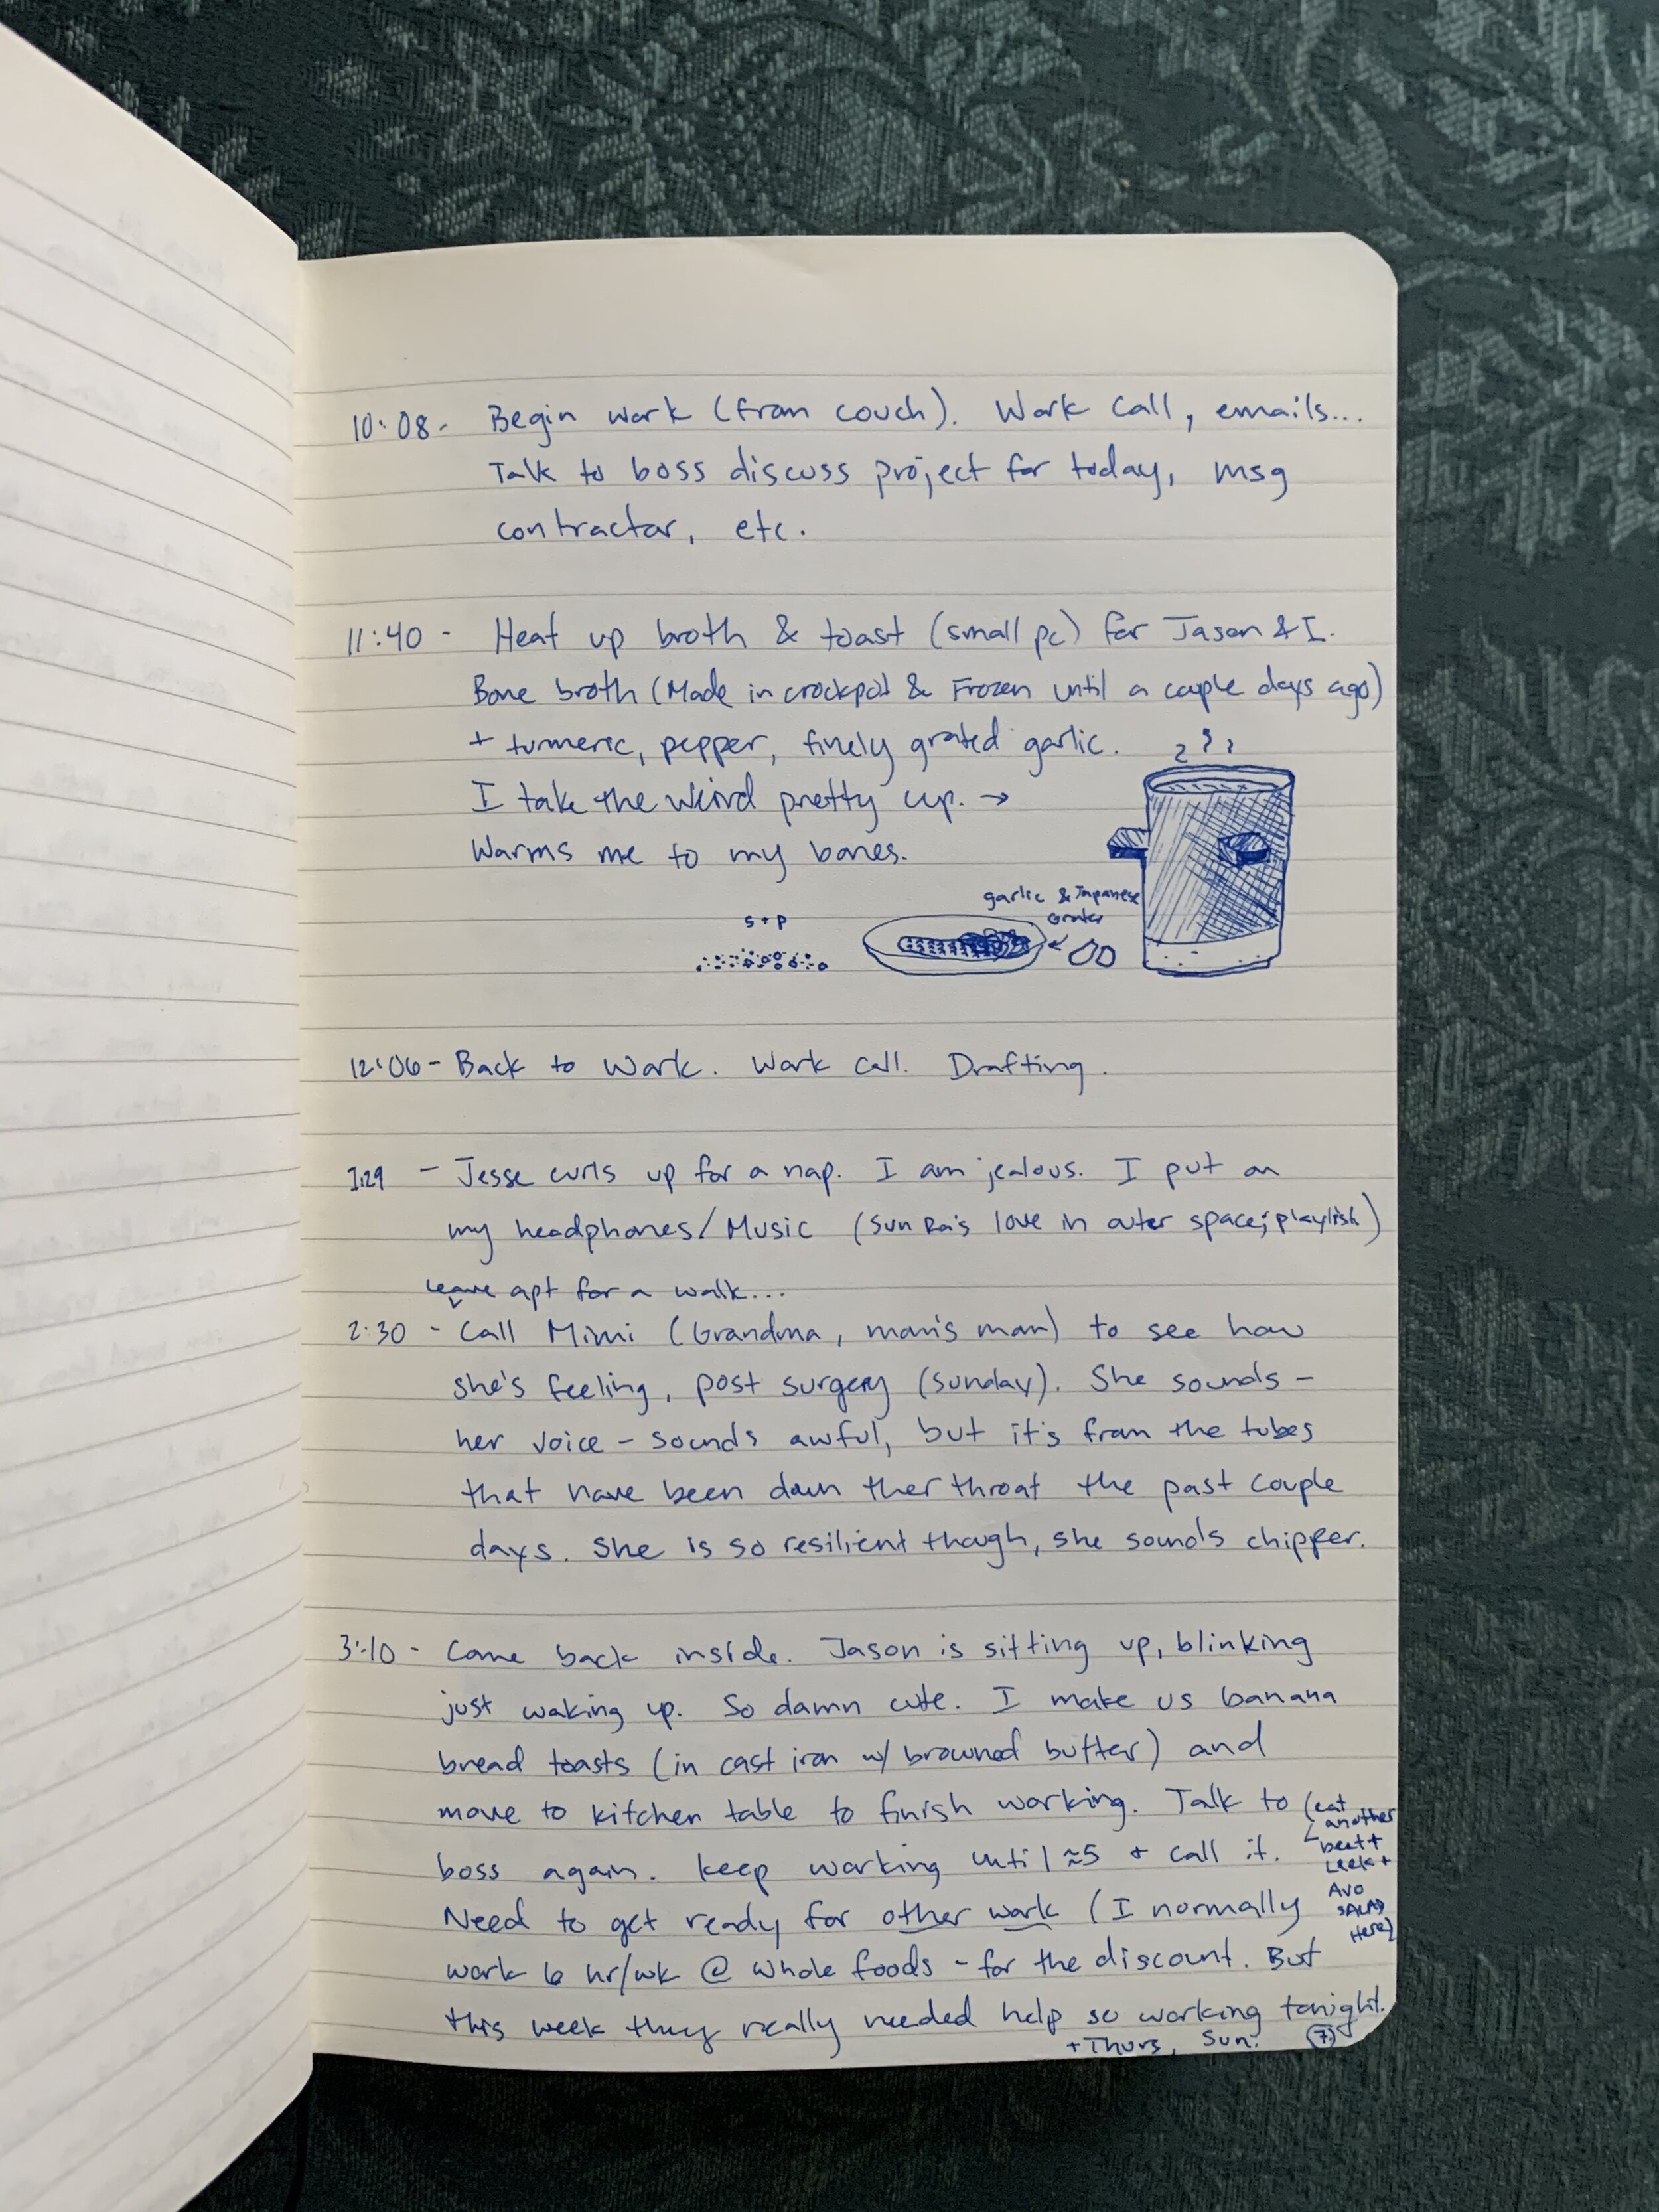 10:08- Begin work (from couch). Work Call, emails...
Talk to boss discuss project for today, msg
contractor, etc.
11:40 - Heat up broth & toast (small pc) for Jason & I.
Bone broth (Made in crockpot & Frozen until a couple days ago)
+ turmeric, pepper, finely grated garlic.
I take the weird pretty cup. →
Warms me to my bones.
garlic & Japanese
Grater
S + P
12:06 - Back to work. Work call. Drafting.
1:29 - Jesse curls up for a nap. I am jealous. I put on
my headphones/Music (Sun Ra's love in outer space; playlist)
leave apt for a walk...
2:30 - Call Mimi (Grandma, mom's mom) to see how
she's feeling, post surgery (Sunday). She sounds -
her voice - sounds awful, but it's from the tubes
that have been down ther throat the past couple
days. She is so resilient though, she sounds chipper.
3:10 - Come back inside. Jason is sitting up, blinking
just waking up. So damn cute. I make us banana
bread toasts (in cast iron w/ browned butter) and
move to kitchen table to finish working. Talk to
boss again. Keep working until ≈5 + call it.
(eat
another
beet +
Leek +
Avo
SALAD
Here)
Need to get ready for other work (I normally
work 6 hr/wk @ whole foods - for the discount. But
this week they really needed help so working tonight.
+ Thurs, Sun.
7